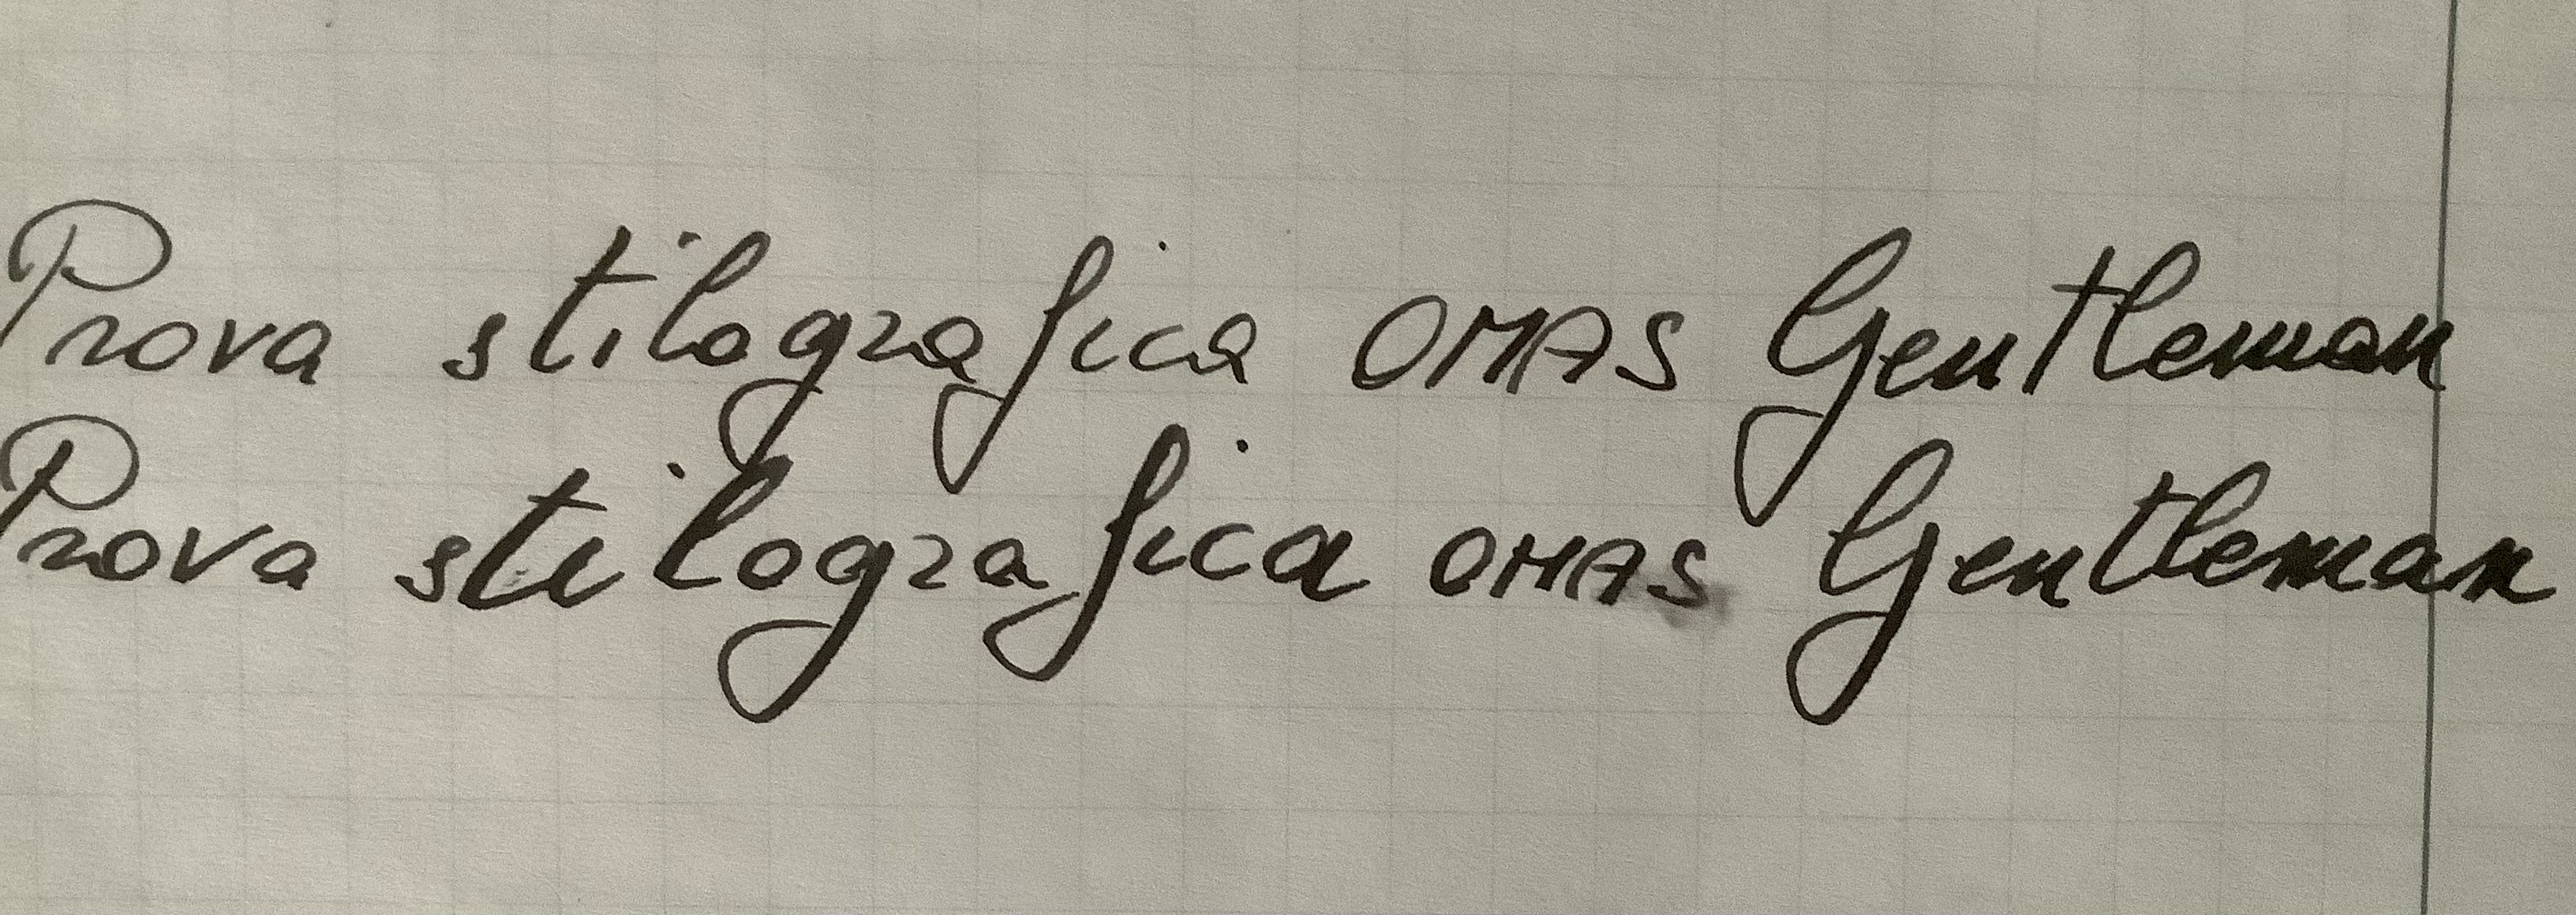 Prova stilografica OMAS Gentleman
Prova stilografica OMAS Gentleman